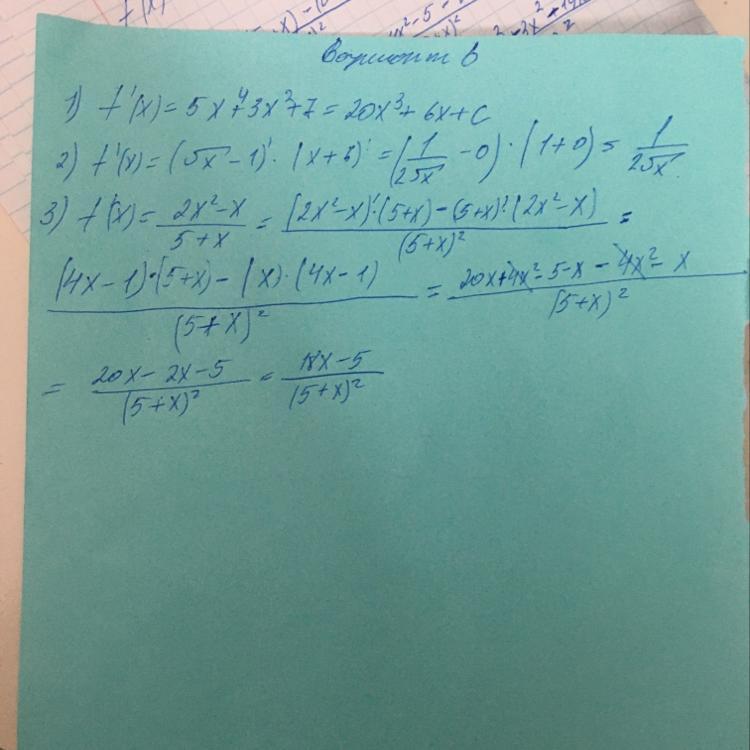 Вариант 6
1) f'(x) = 5x⁴+3x²+7 = 20x³+6x+C
2) f'(x) = (√x - 1)' · (x+3)' = (1/(2√x) - 0) · (1+0) = 1/(2√x)
3) f'(x) = (2x²-x)/(5+x) = ((2x²-x)'·(5+x) - (5+x)'·(2x²-x))/(5+x)² =
((4x-1)·(5+x) - (x)·(4x-1))/(5+x)² = (20x+4x²-5-x-4x²-x)/(5+x)²
= (20x-2x-5)/(5+x)² = (18x-5)/(5+x)²